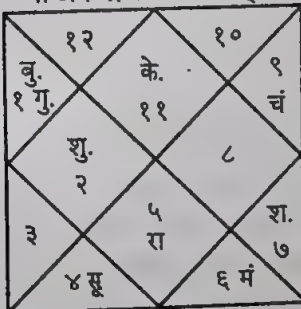 १२
१०
बु.
१ गु.
के.
११
९
चं
शु.
२
८
३
५
रा
श.
७
४ सू
६ मं